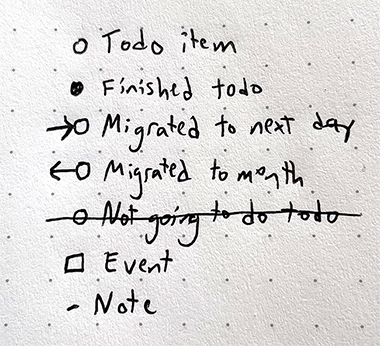 ○ Todo item
● Finished todo
→○ Migrated to next day
←○ Migrated to month
○ Not going to do todo
□ Event
- Note